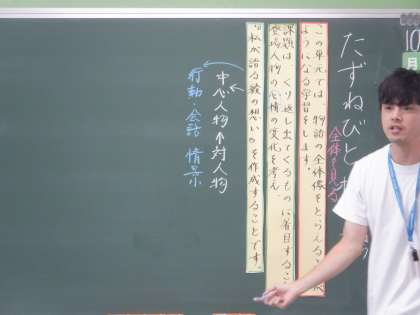 10
月
たずねびと
全体を見る
この単元では、物語の全体像をとらえる
ようになる学習をします。
課題は、くり返し出てくるものに着目する
登場人物の心情の変化を考え、
「私が語る綾の想い」を作成することです。
中心人物 対人物
行動・会話 情景